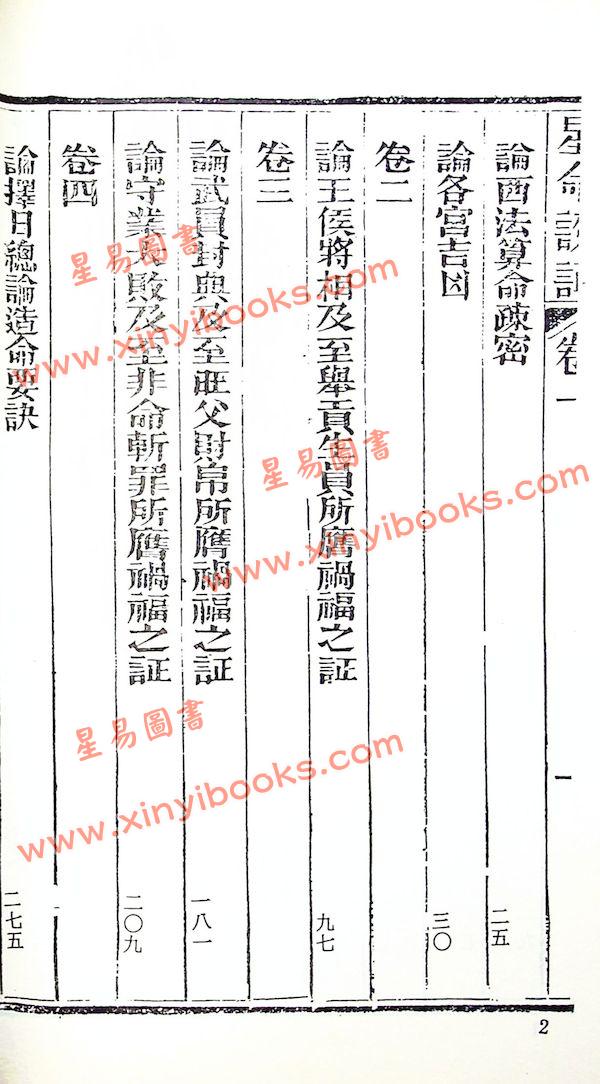 星命 卷一
一
論西法算命疎密 二五
論各宮吉凶 三〇
卷二
論王侯將相及至舉貢生員所膺禍福之証 九七
卷三
論武員封典及至旺父財帛所膺禍福之証 一八一
論守業大敗及至非命斬罪所膺禍福之証 二〇九
卷四
論擇日總論造命要訣 二七五
2
星易圖書
www.xinyibooks.com
星易圖書
www.xinyibooks.com
星易圖書
www.xinyibooks.com